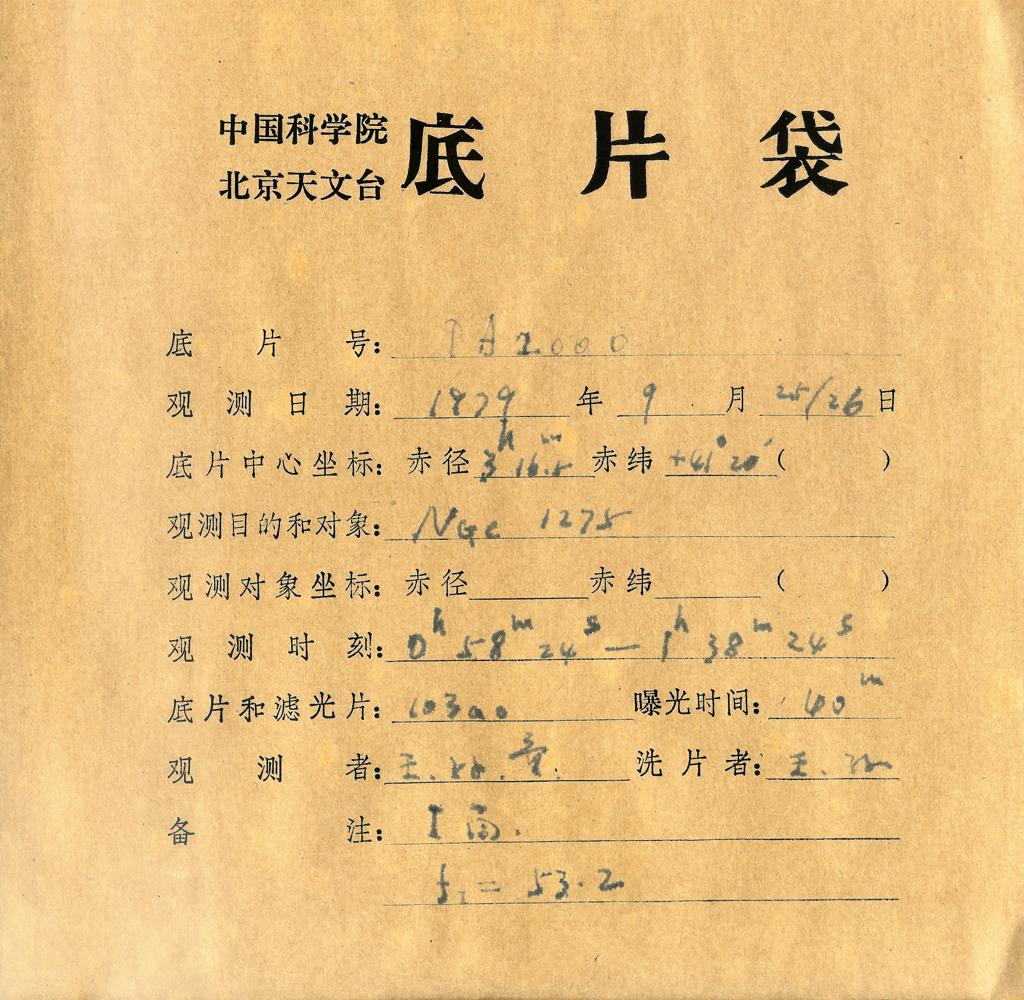 中国科学院
北京天文台 底片袋
底片号: PA2000
观测日期: 1979 年 9 月 25/26 日
底片中心坐标: 赤径 3h 16m.5 赤纬 +41°20′ ( )
观测目的和对象: NGC 1275
观测对象坐标: 赤径 赤纬 ( )
观测时刻: 0h 58m 24s — 1h 38m 24s
底片和滤光片: 103aO 曝光时间: 40m
观测者: 王. 洗片者: 王.
备注: I
f = 53.2